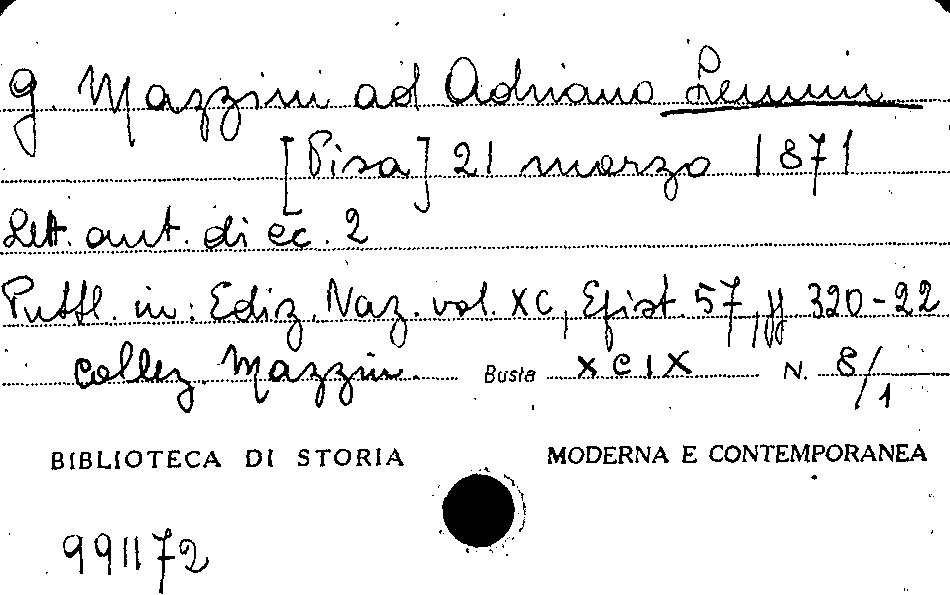 G. Mazzini ad Adriano Lemmi
[Pisa] 21 marzo 1871
Lett. aut. di cc. 2
Pubbl. in: Ediz. Naz. vol. XC, Epist. 57, pp 320-22
Collez. Mazzini. Busta XCIX N. 8/1
BIBLIOTECA DI STORIA MODERNA E CONTEMPORANEA
991172